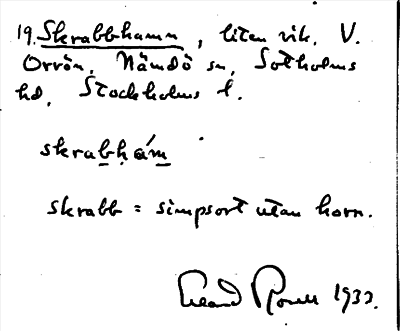 19. Skrabbhamn, liten vik, V.
Orrön, Nämdö sn, Sotholms
hd, Stockholms l.
skrabhám
skrabb = simpsort utan horn.
1933.